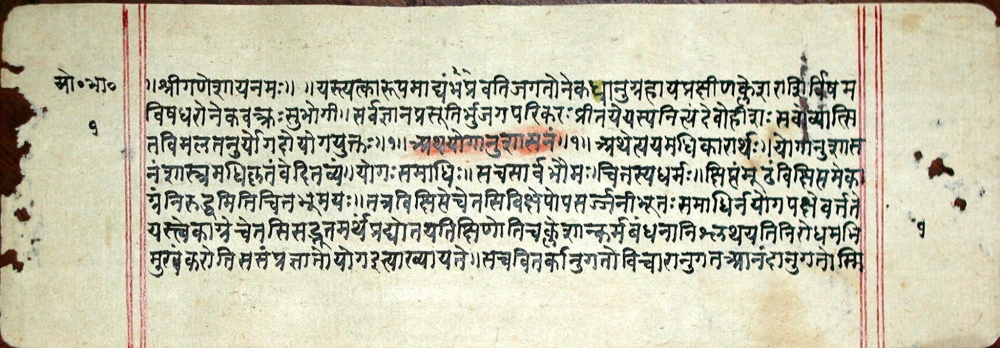 यो॰भा॰
१
॥श्रीगणेशायनमः॥ ॥यस्त्यत्कारूपमाद्यंप्रभवतिजगतोनेकधानुग्रहायप्रक्षीणक्लेशराशिर्विषम
विषधरोनेकवक्त्रःसुभोगी॥सर्वज्ञानप्रसूतिर्भुजगपरिकरःप्रीतयेयस्यनित्यंदेवोहीशःसवोव्यात्सि
तविमलतनुर्योगदोयोगयुक्तः॥१॥अथयोगानुशासनं॥१॥अथेत्ययमधिकारार्थः॥योगानुशास
नंशास्त्रमधिकृतंवेदितव्यं॥योगःसमाधिः॥सचसार्वभौमःचितस्यधर्मः॥क्षिप्तंमूढंविक्षिप्तमेका
ग्रंनिरुद्धमितिचितभूमयः॥तत्रविक्षिप्तेचेतसिविक्षेपोपसर्ज्जनीभूतःसमाधिर्नयोगपक्षेवर्त्तते
यस्त्वेकाग्रेचेतसिसद्भूतमर्थंप्रद्योतयतिक्षिणोतिचक्लेशान्कर्मबंधनानिश्लथयतिनिरोधमभि
मुखंकरोतिससंप्रज्ञातोयोगइत्याख्यायते॥सचवितर्कानुगतोविचारानुगतआनंदानुगतोस्मि
१